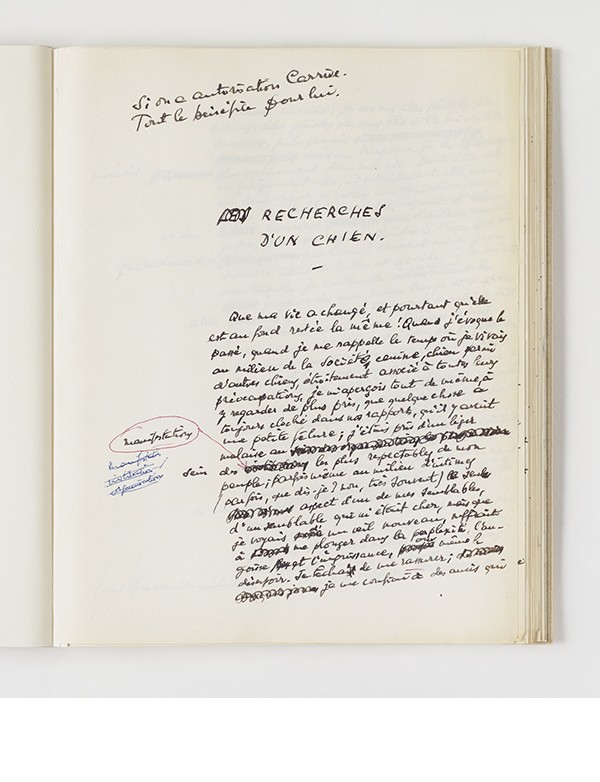 Si on a autorisation Carrive.
Tout le bénéfice pour lui.
RECHERCHES
D'UN CHIEN.
Que ma vie a changé, et pourtant qu'elle
est au fond restée la même! Quand j'évoque le
passé, quand je me rappelle le temps où je vivais
au milieu de la société, comme, chien parmi
d'autres chiens, étroitement associé à toutes leurs
préoccupations, je m'aperçois tout de même, à
y regarder de plus près, que quelque chose a
toujours cloché dans nos rapports, qu'il y avait
une petite fêlure; j'étais pris d'un léger
manifestations
malaise au
sein
des les plus respectables de mon
peuple; parfois même au milieu d'intimes
parfois, que dis-je? non, très souvent) le seul
aspect d'un de mes semblables,
d'un semblable qui m'était cher, mais que
je voyais d'un œil nouveau, suffisait
à me plonger dans la perplexité, l'an-
goisse et l'impuissance, même le
désespoir. Je tâchais de me rassurer;
je me confiais à des amis qui